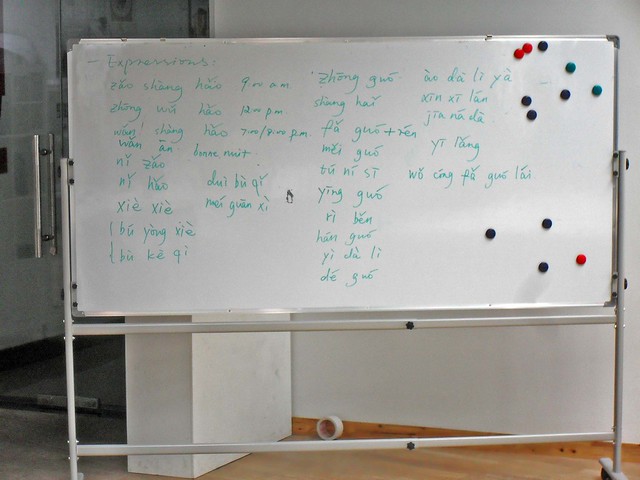 - Expressions:
zǎo shàng hǎo 9:00 a.m
zhōng wǔ hǎo 12:00 p.m.
wǎn shàng hǎo 7:00/8:00 p.m.
wǎn ān bonne nuit
nǐ zǎo
nǐ hǎo duì bù qǐ
xiè xiè méi guān xì
bú yòng xiè
bú kè qì
zhōng guó ào dà lì yà
shàng hǎi xīn xī lán
jiā ná dà
fǎ guó + rén
měi guó yī lǎng
tú ní sī wǒ cóng fǎ guó lái
yīng guó
rì běn
hán guó
yì dà lì
dé guó